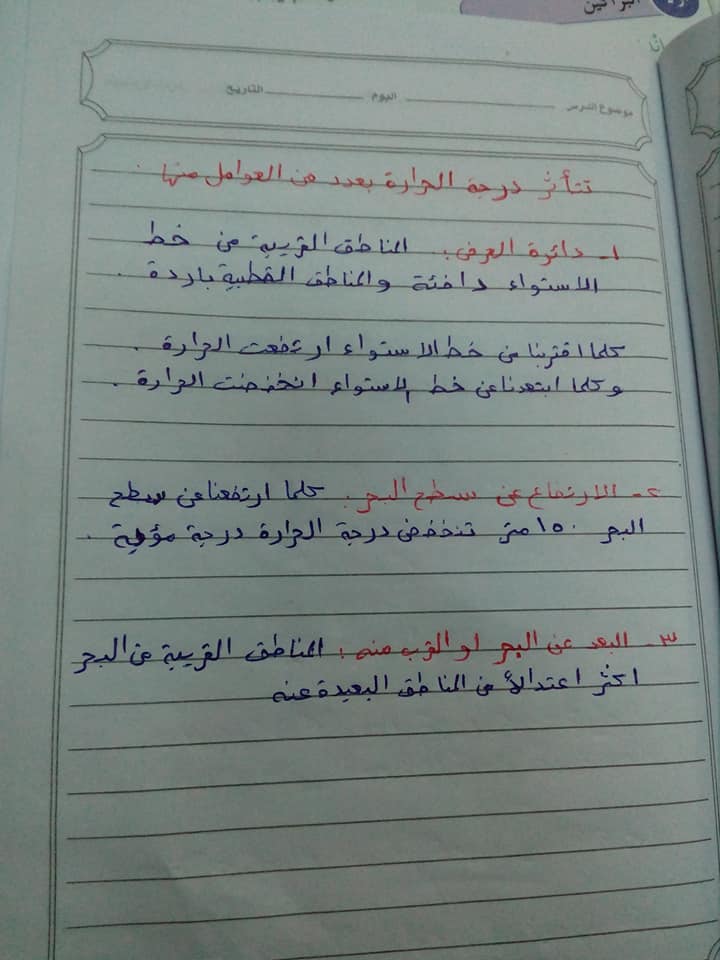 البراكين
موضوع الدرس ــــــــــ اليوم ــــــــــ التاريخ ــــــــــ
تتأثر درجة الحرارة بعدد من العوامل منها:
١- دائرة العرض: المناطق القريبة من خط
الاستواء دافئة والمناطق القطبية باردة.
كلما اقتربنا من خط الاستواء ارتفعت الحرارة.
وكلما ابتعدنا عن خط الاستواء انخفضت الحرارة.
٢- الارتفاع عن سطح البحر: كلما ارتفعنا عن سطح
البحر ١٥٠ متر تنخفض درجة الحرارة درجة مؤية.
٣- البعد عن البحر او القرب منه: المناطق القريبة من البحر
اكثر اعتدالاً من المناطق البعيدة عنه